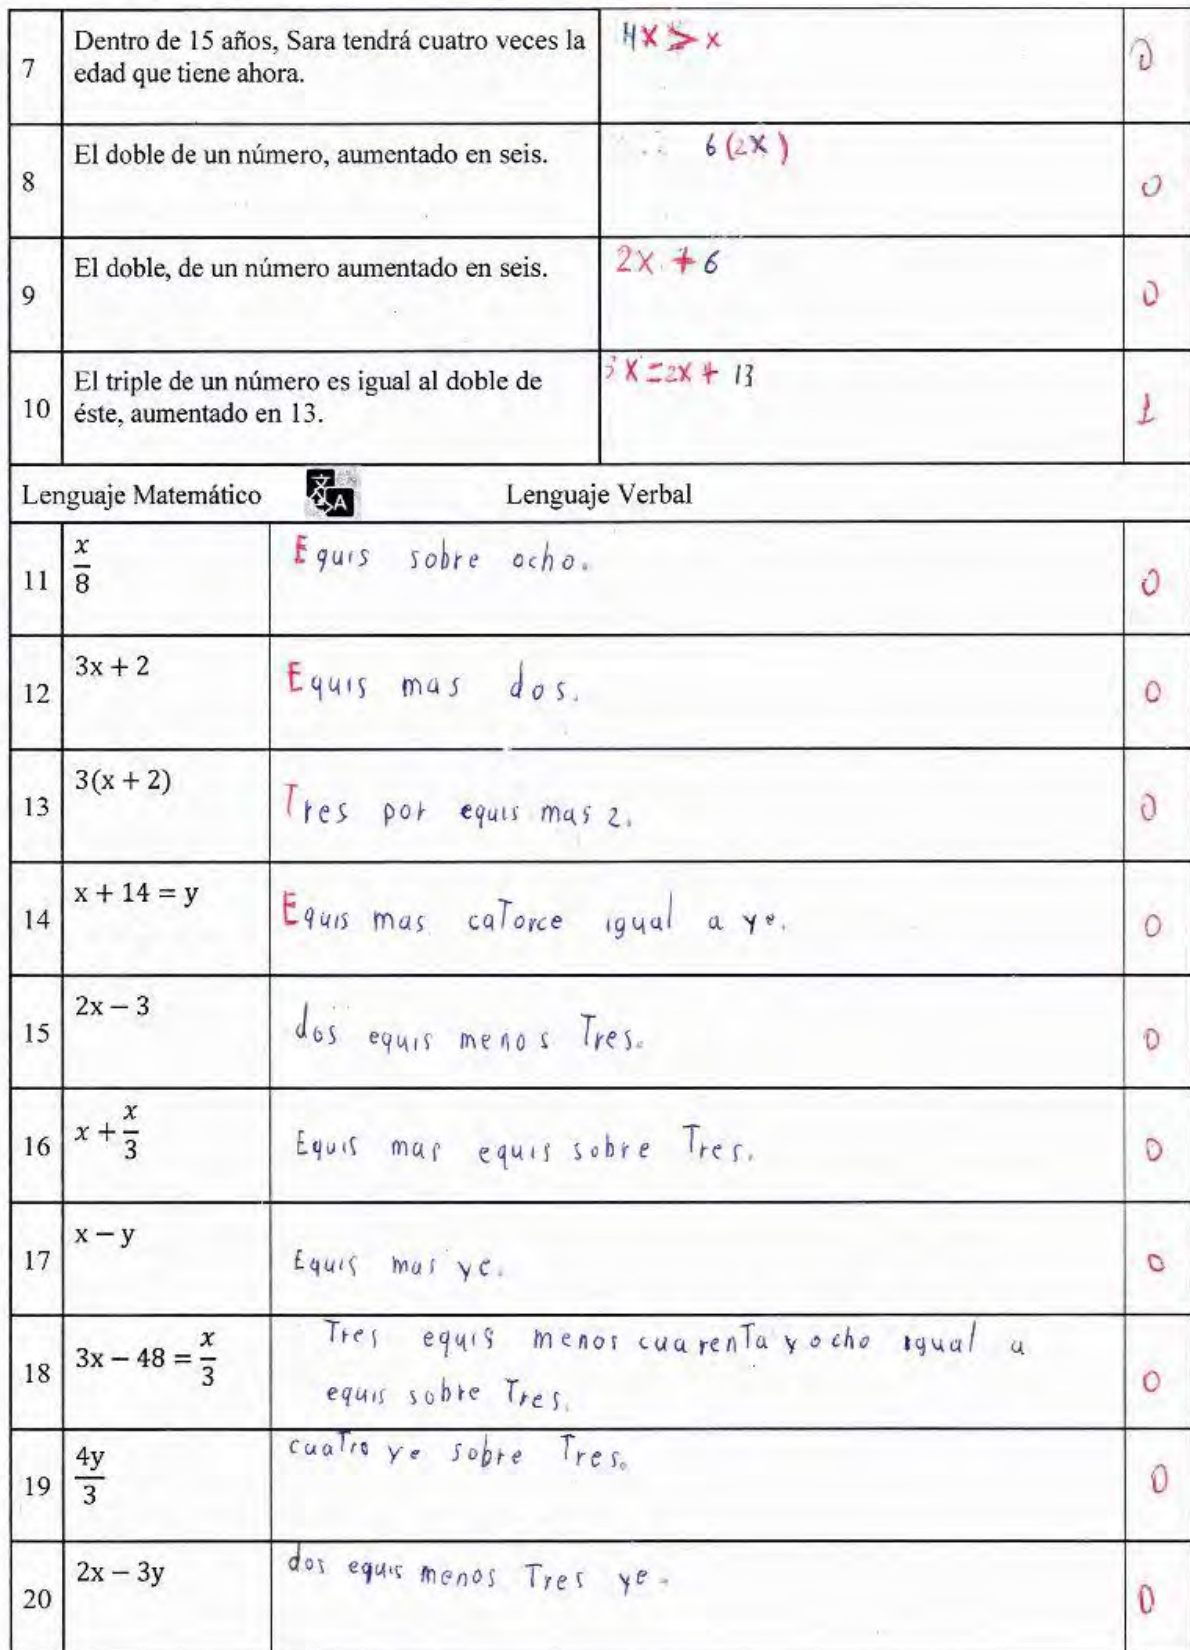 7 Dentro de 15 años, Sara tendrá cuatro veces la 4x > x 0
edad que tiene ahora.
8 El doble de un número, aumentado en seis. 6(2x) 0
9 El doble, de un número aumentado en seis. 2x + 6 0
10 El triple de un número es igual al doble de 3x=2x + 13 1
éste, aumentado en 13.
Lenguaje Matemático 文A Lenguaje Verbal
11 x/8 Equis sobre ocho. 0
12 3x + 2 Equis mas dos. 0
13 3(x + 2) Tres por equis mas 2. 0
14 x + 14 = y Equis mas caTorce igual a ye. 0
15 2x – 3 dos equis menos Tres. 0
16 x + x/3 Equis mas equis sobre Tres. 0
17 x – y Equis mas ye. 0
18 3x – 48 = x/3 Tres equis menos cuarenTa y ocho igual a 0
equis sobre Tres.
19 4y/3 cuaTro ye sobre Tres. 0
20 2x – 3y dos equis menos Tres ye. 0